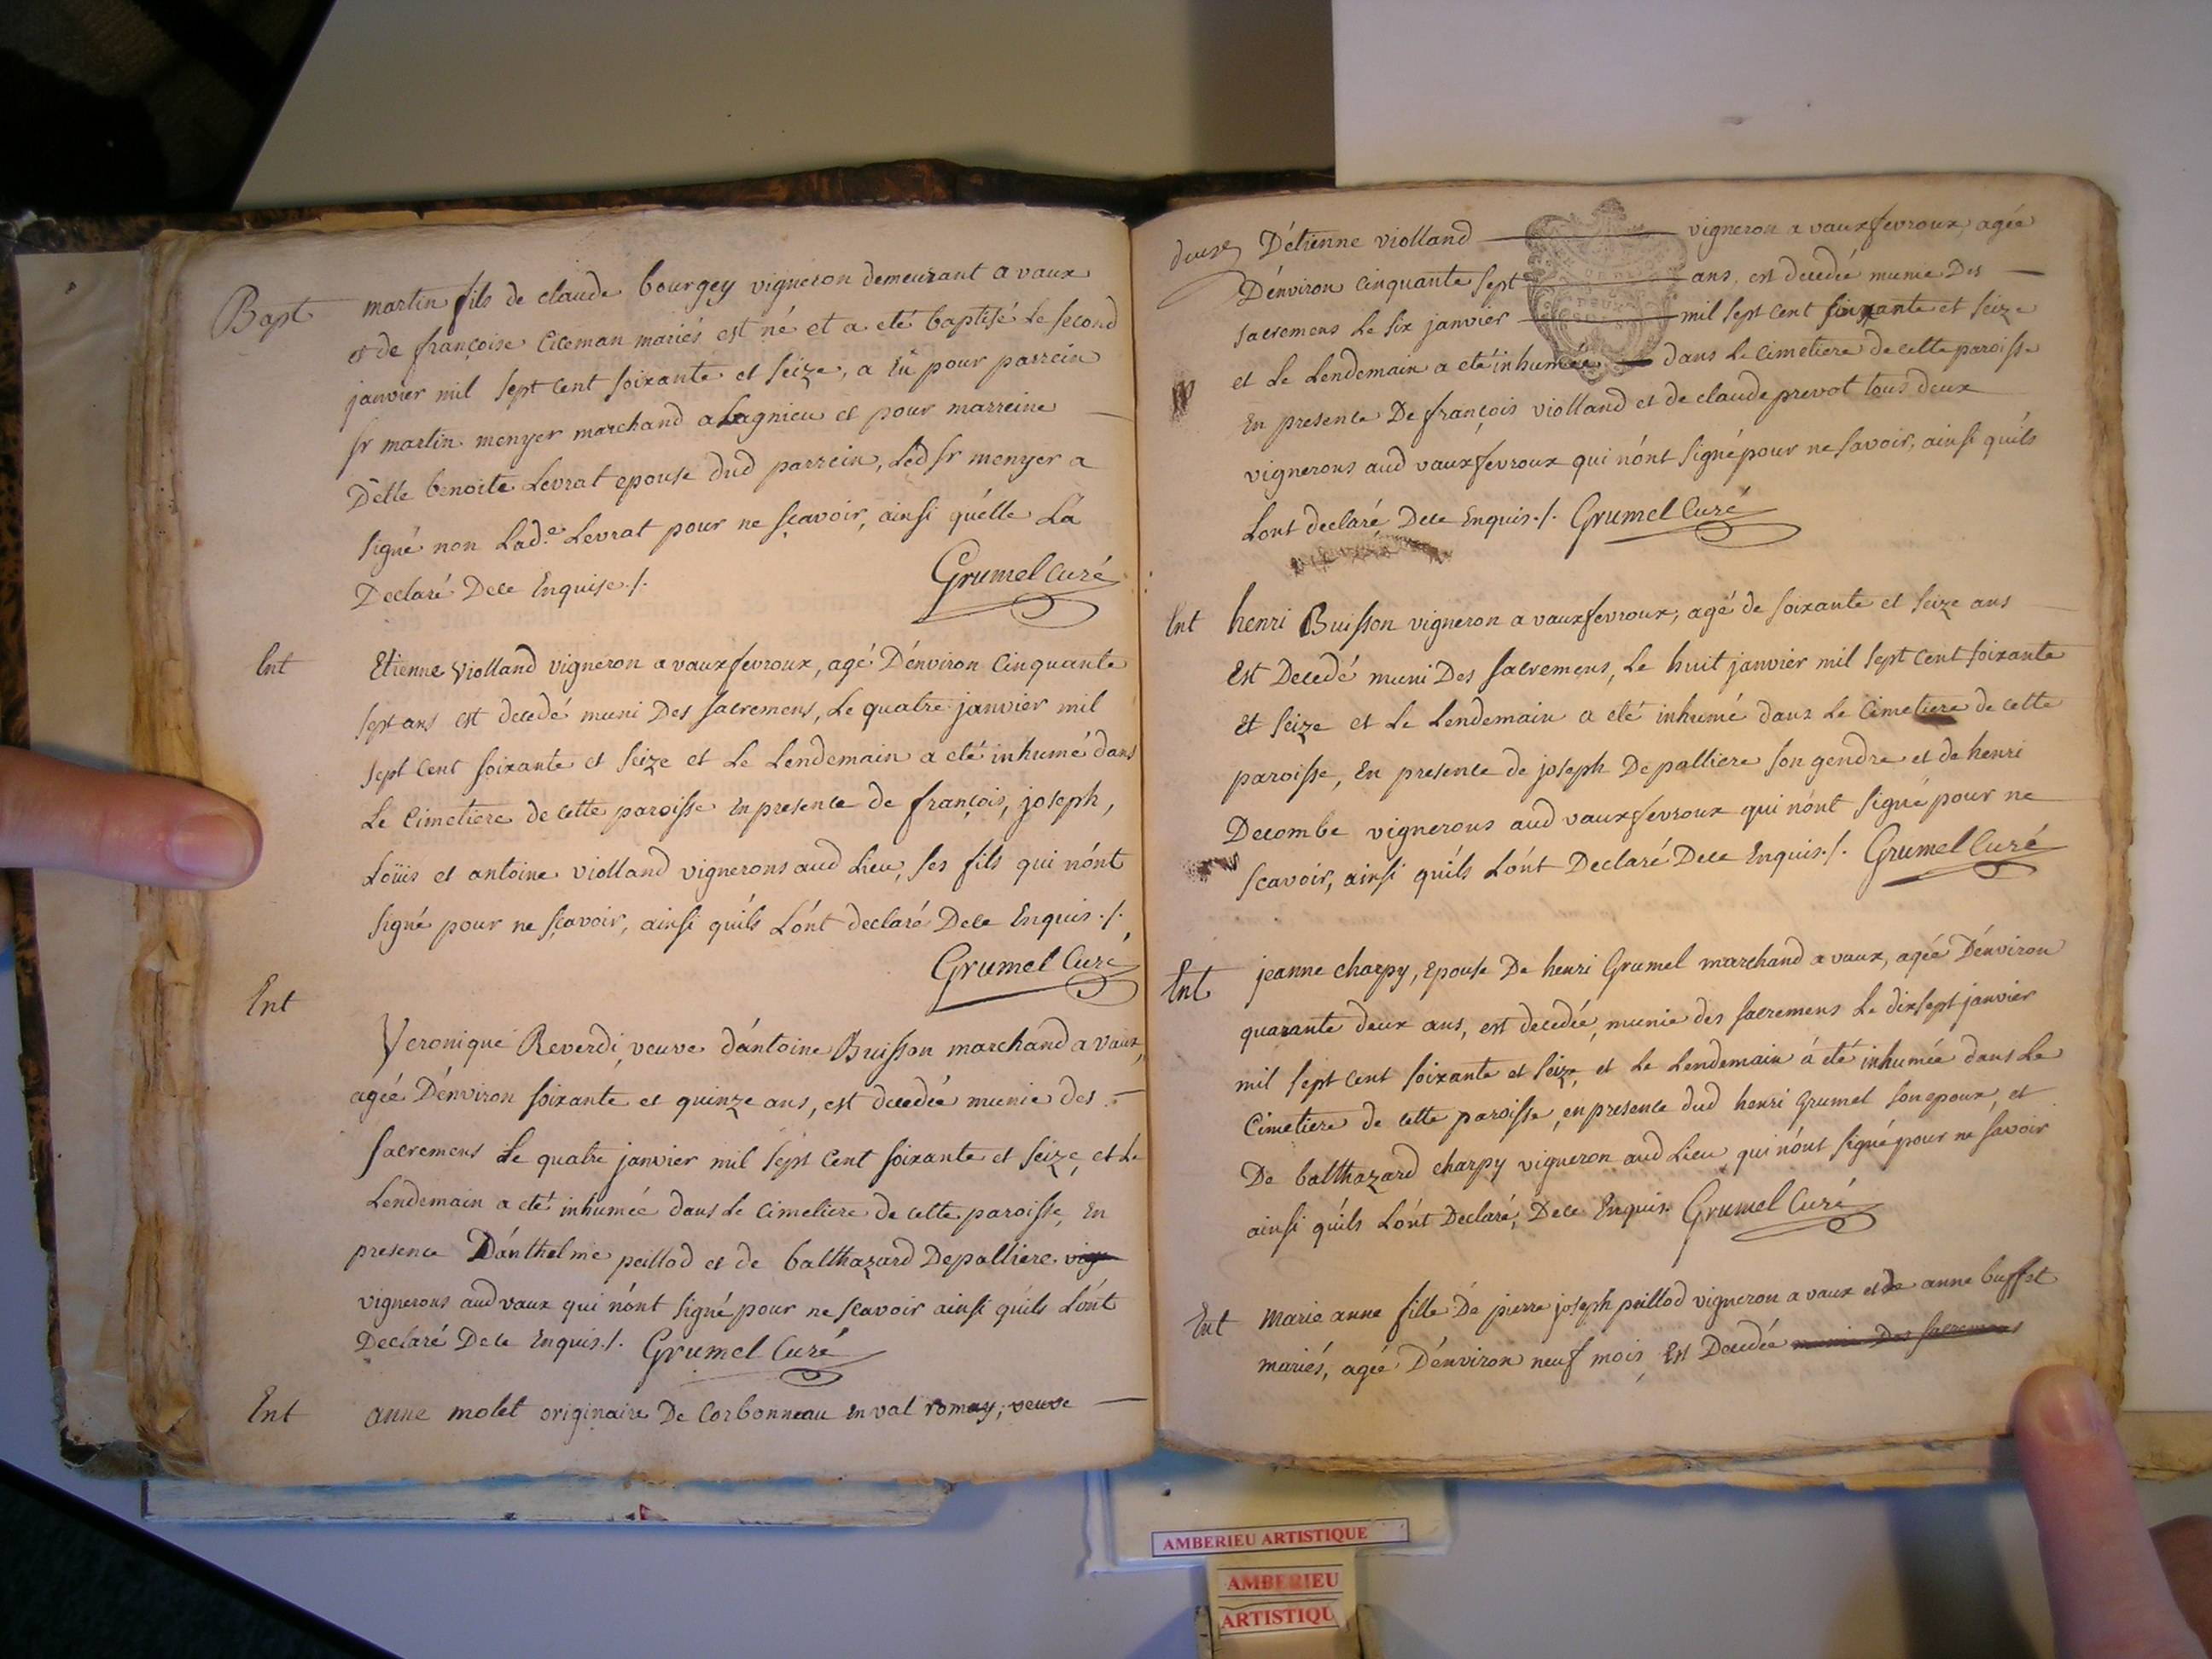 Bapt martin fils de claude bourgey vigneron demeurant a vaux
et de françoise mariés est né et a eté baptisé le second
janvier mil sept cent soixante et seize, a Eü pour parrein
sr martin menyer marchand a Lagnieu et pour marreine
Delle benoite Levrat epouse dud parrein, Led sr menyer a
signé non Lad.e Levrat pour ne sçavoir, ainsi qu'elle La
Declaré Dece Enquise./.
Grumel curé
Ent Etienne violland vigneron a vauxfevroux, agé D'environ Cinquante
sept ans est decedé muni Des sacremens, Le quatre janvier mil
sept cent soixante et seize et Le Lendemain a eté inhumé dans
Le Cimetiere de cette paroisse en presence de françois, joseph,
Loüis et antoine violland vignerons aud Lieu, ses fils qui n'ont
signé pour ne sçavoir, ainsi qu'ils L'ont declaré Dece Enquis./.
Grumel Curé
Ent
Veronique Reverdi, veuve d'antoine Buisson marchand a vaux,
agée D'environ soixante et quinze ans, est decedée munie des
sacremens Le quatre janvier mil sept Cent soixante et seize, et Le
Lendemain a eté inhumée dans Le cimetiere de cette paroisse, En
presence D'anthelme peillod et de balthazard Depalliere vig
vignerons aud vaux qui n'ont signé pour ne scavoir ainsi qu'ils L'ont
Declaré Dece Enquis./. Grumel Curé
Ent anne molet originaire De Corbonneau en val romey, veuve
deux D'etienne violland vigneron a vauxfevroux, agée
D'environ cinquante sept ans, est decedée munie Des
sacremens Le six janvier mil sept cent soixante et seize
et Le Lendemain a eté inhumée dans Le Cimetiere de cette paroisse
En presence De françois violland et de claude prevot tous deux
vignerons aud vauxfevroux qui n'ont signé pour ne savoir, ainsi qu'ils
Lont declaré Dece Enquis./. Grumel Curé
Ent henri Buisson vigneron a vauxfevroux, agé de soixante et seize ans
Est Decedé muni Des sacremens, Le huit janvier mil sept cent soixante
et seize et Le Lendemain a eté inhumé dans Le Cimetiere de cette
paroisse, En presence de joseph Depalliere son gendre et de henri
Decombe vignerons aud vauxfevroux qui n'ont signé pour ne
scavoir, ainsi qu'ils L'ont Declaré Dece Enquis./. Grumel Curé
Ent jeanne charpy, Epouse De henri Grumel marchand a vaux, agée D'environ
quarante deux ans, est decedée, munie des sacremens Le dixsept janvier
mil sept cent soixante et seize, et Le Lendemain á eté inhumée dans Le
Cimetiere de cette paroisse, en presence dud henri Grumel son epoux, et
De balthazard charpy vigneron aud Lieu qui n'ont signé pour ne savoir
ainsi qu'ils L'ont Declaré, Dece Enquis. Grumel Curé
Ent Marie anne fille De pierre joseph peillod vigneron a vaux et de anne buffet
mariés, agée D'environ neuf mois, Est Decedée munie Des sacremens
AMBERIEU ARTISTIQUE
AMBERIEU
ARTISTIQU